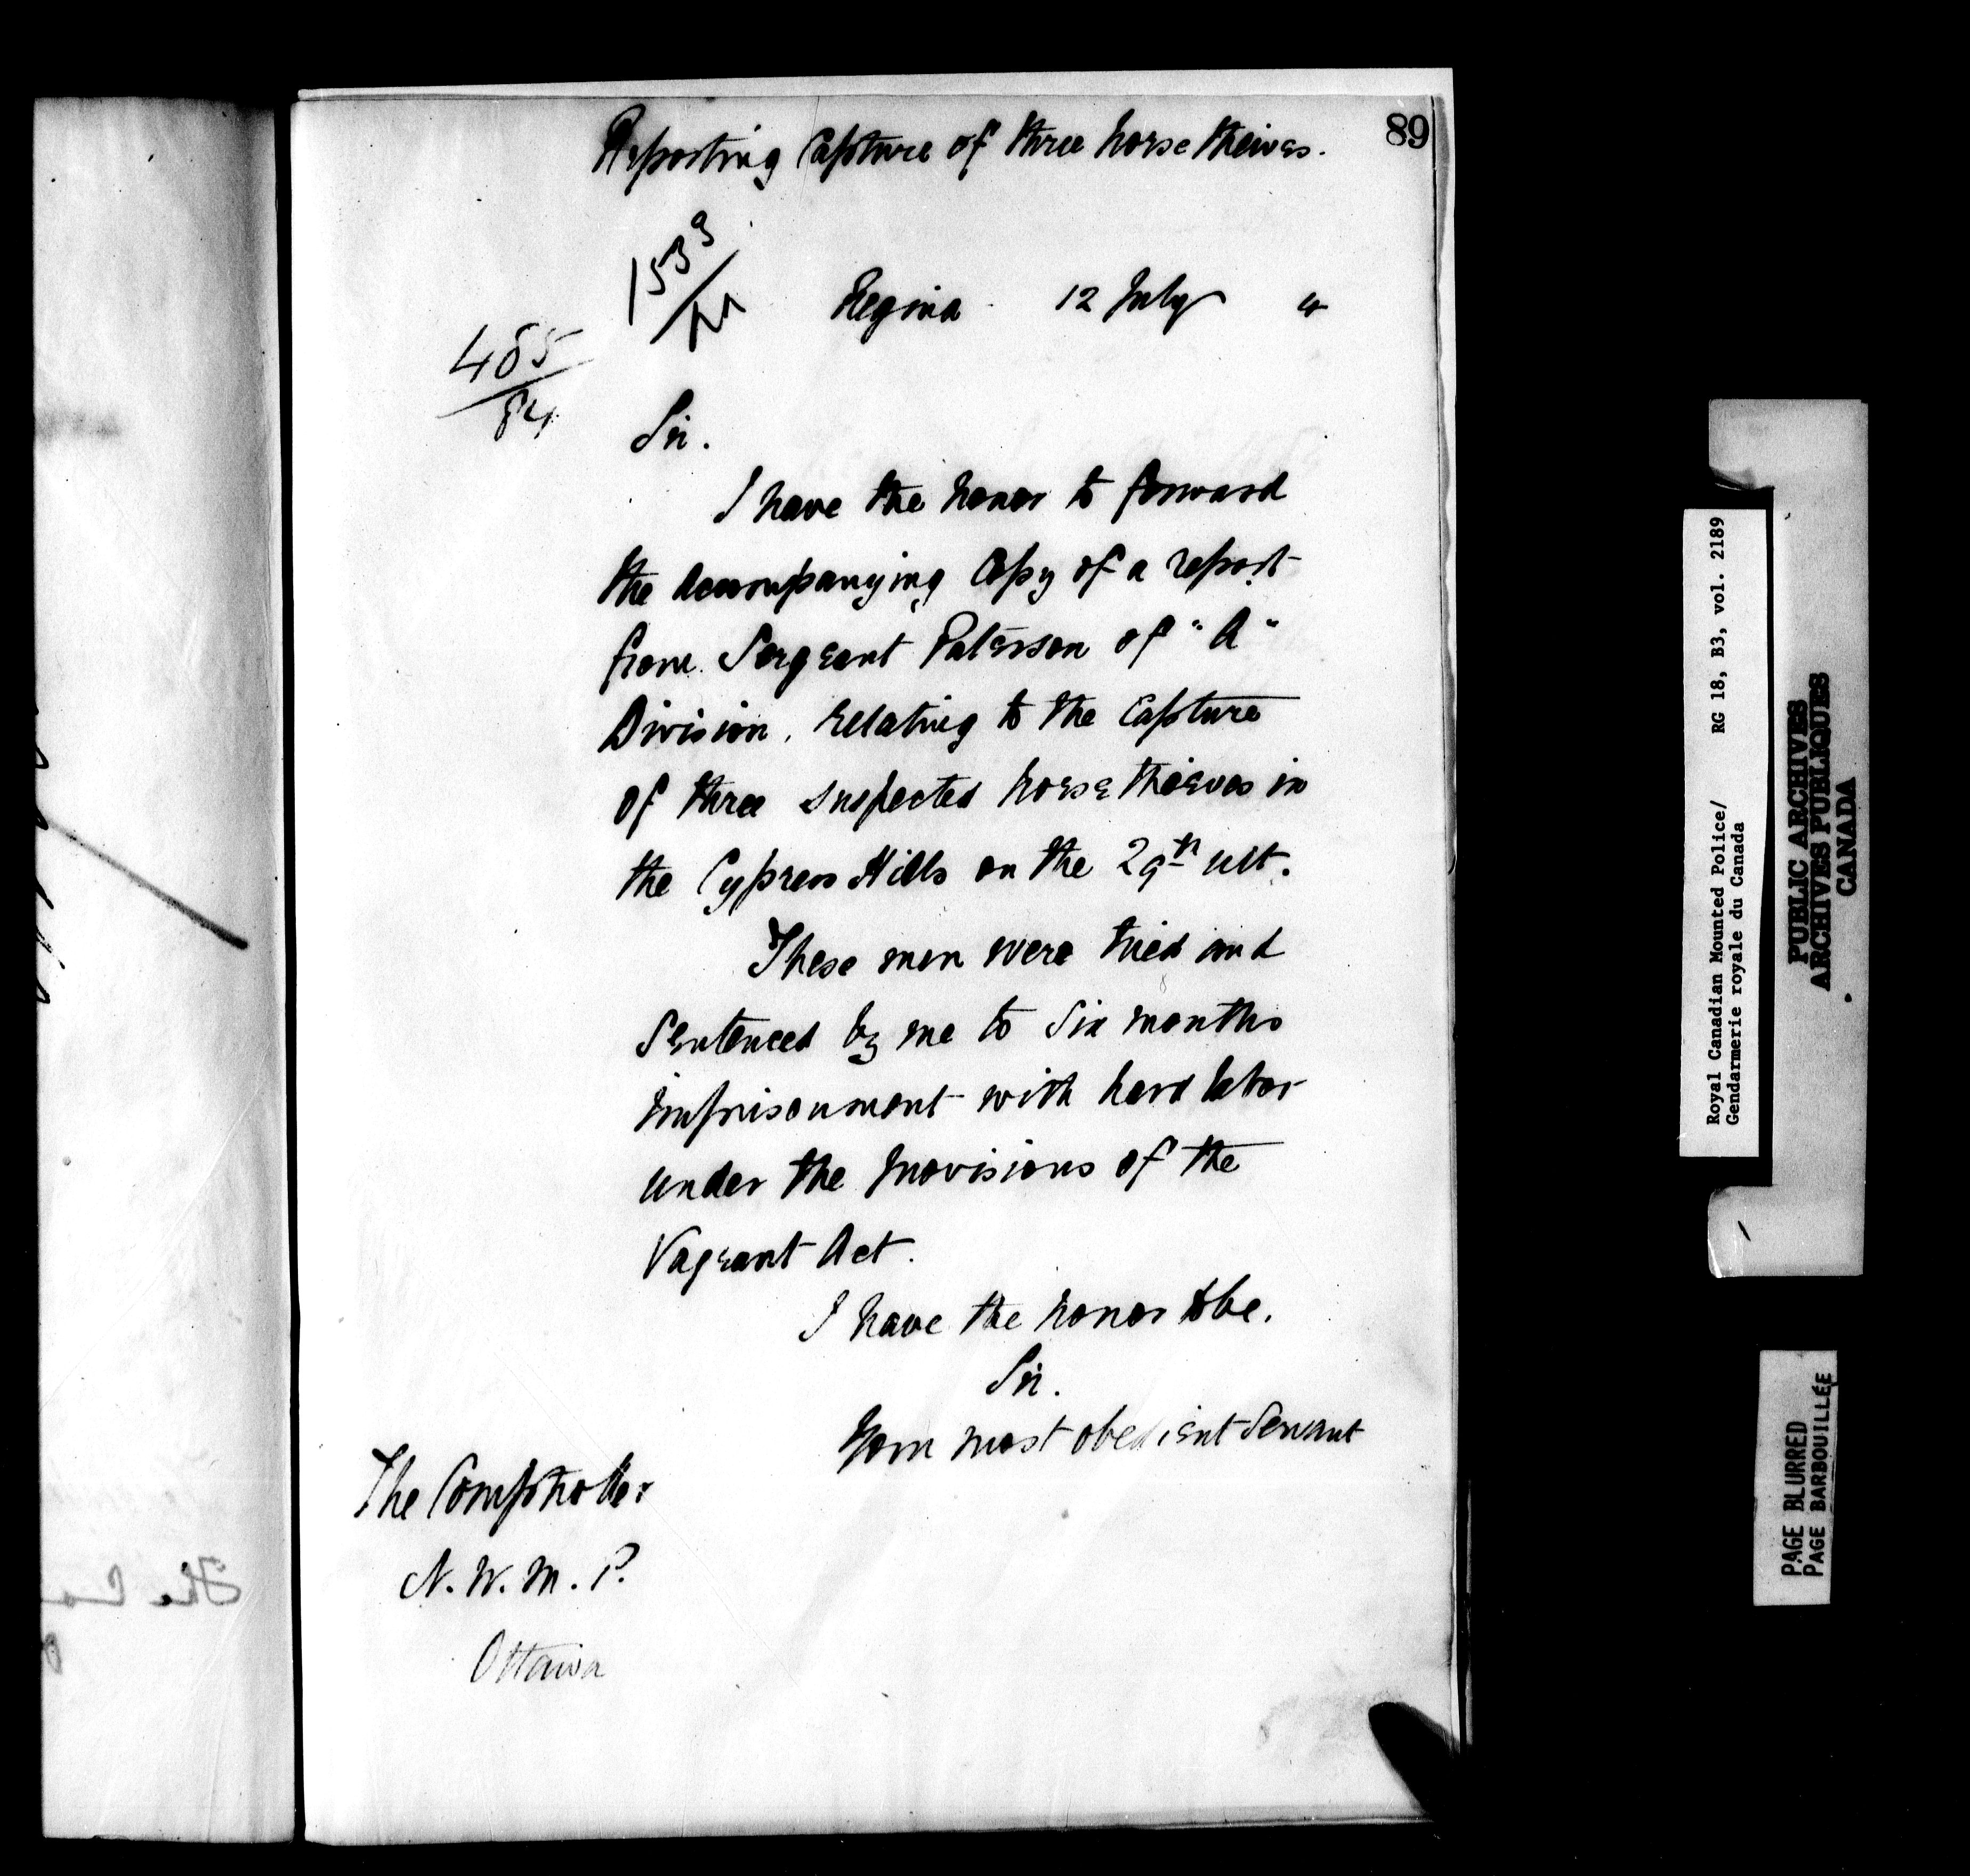 89
Reporting Capture of three horse theives.
1533
Regina 12 July 4
485
84
Sir.
I have the honor to forward
the accompanying Copy of a report
from Sergeant Paterson of "A"
Division, relating to the Capture
of three suspected horse thieves in
the Cypress Hills on the 29th ult.
These men were tried and
Sentenced by me to Six months
imprisonment with hard labor
under the provisions of the
Vagrant Act.
I have the honor to be,
Sir.
Your most obedient Servant
The Comptroller
N. W. M. P.
Ottawa
Royal Canadian Mounted Police/ RG 18, B3, vol. 2189
Gendarmerie royale du Canada
PUBLIC ARCHIVES
ARCHIVES PUBLIQUES
CANADA
PAGE BLURRED
PAGE BARBOUILLÉE